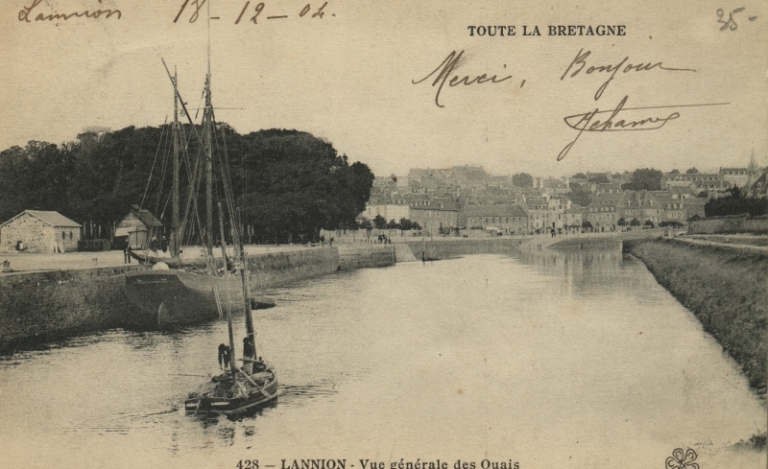 Lannion 18-12-04.
TOUTE LA BRETAGNE
25-
Merci, Bonjour
428 – LANNION - Vue générale des Quais